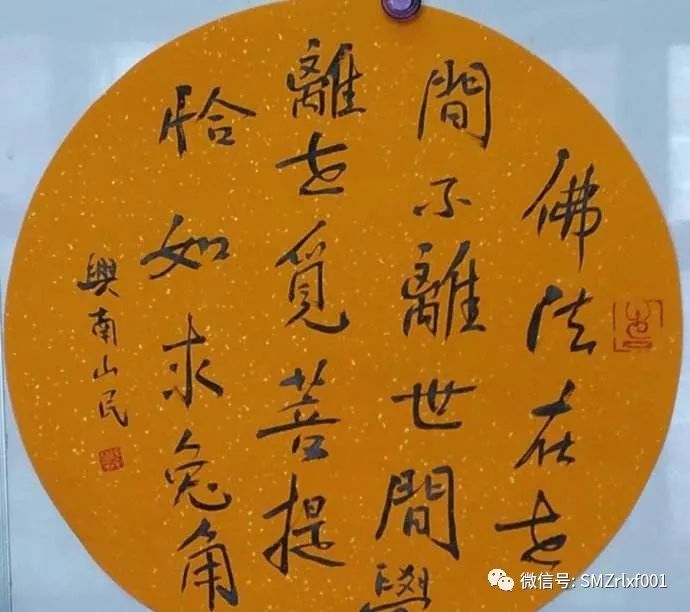 佛法在世
間不離世間覺
離世覓菩提
恰如求兔角
興南山民
微信号: SMZrlxf001